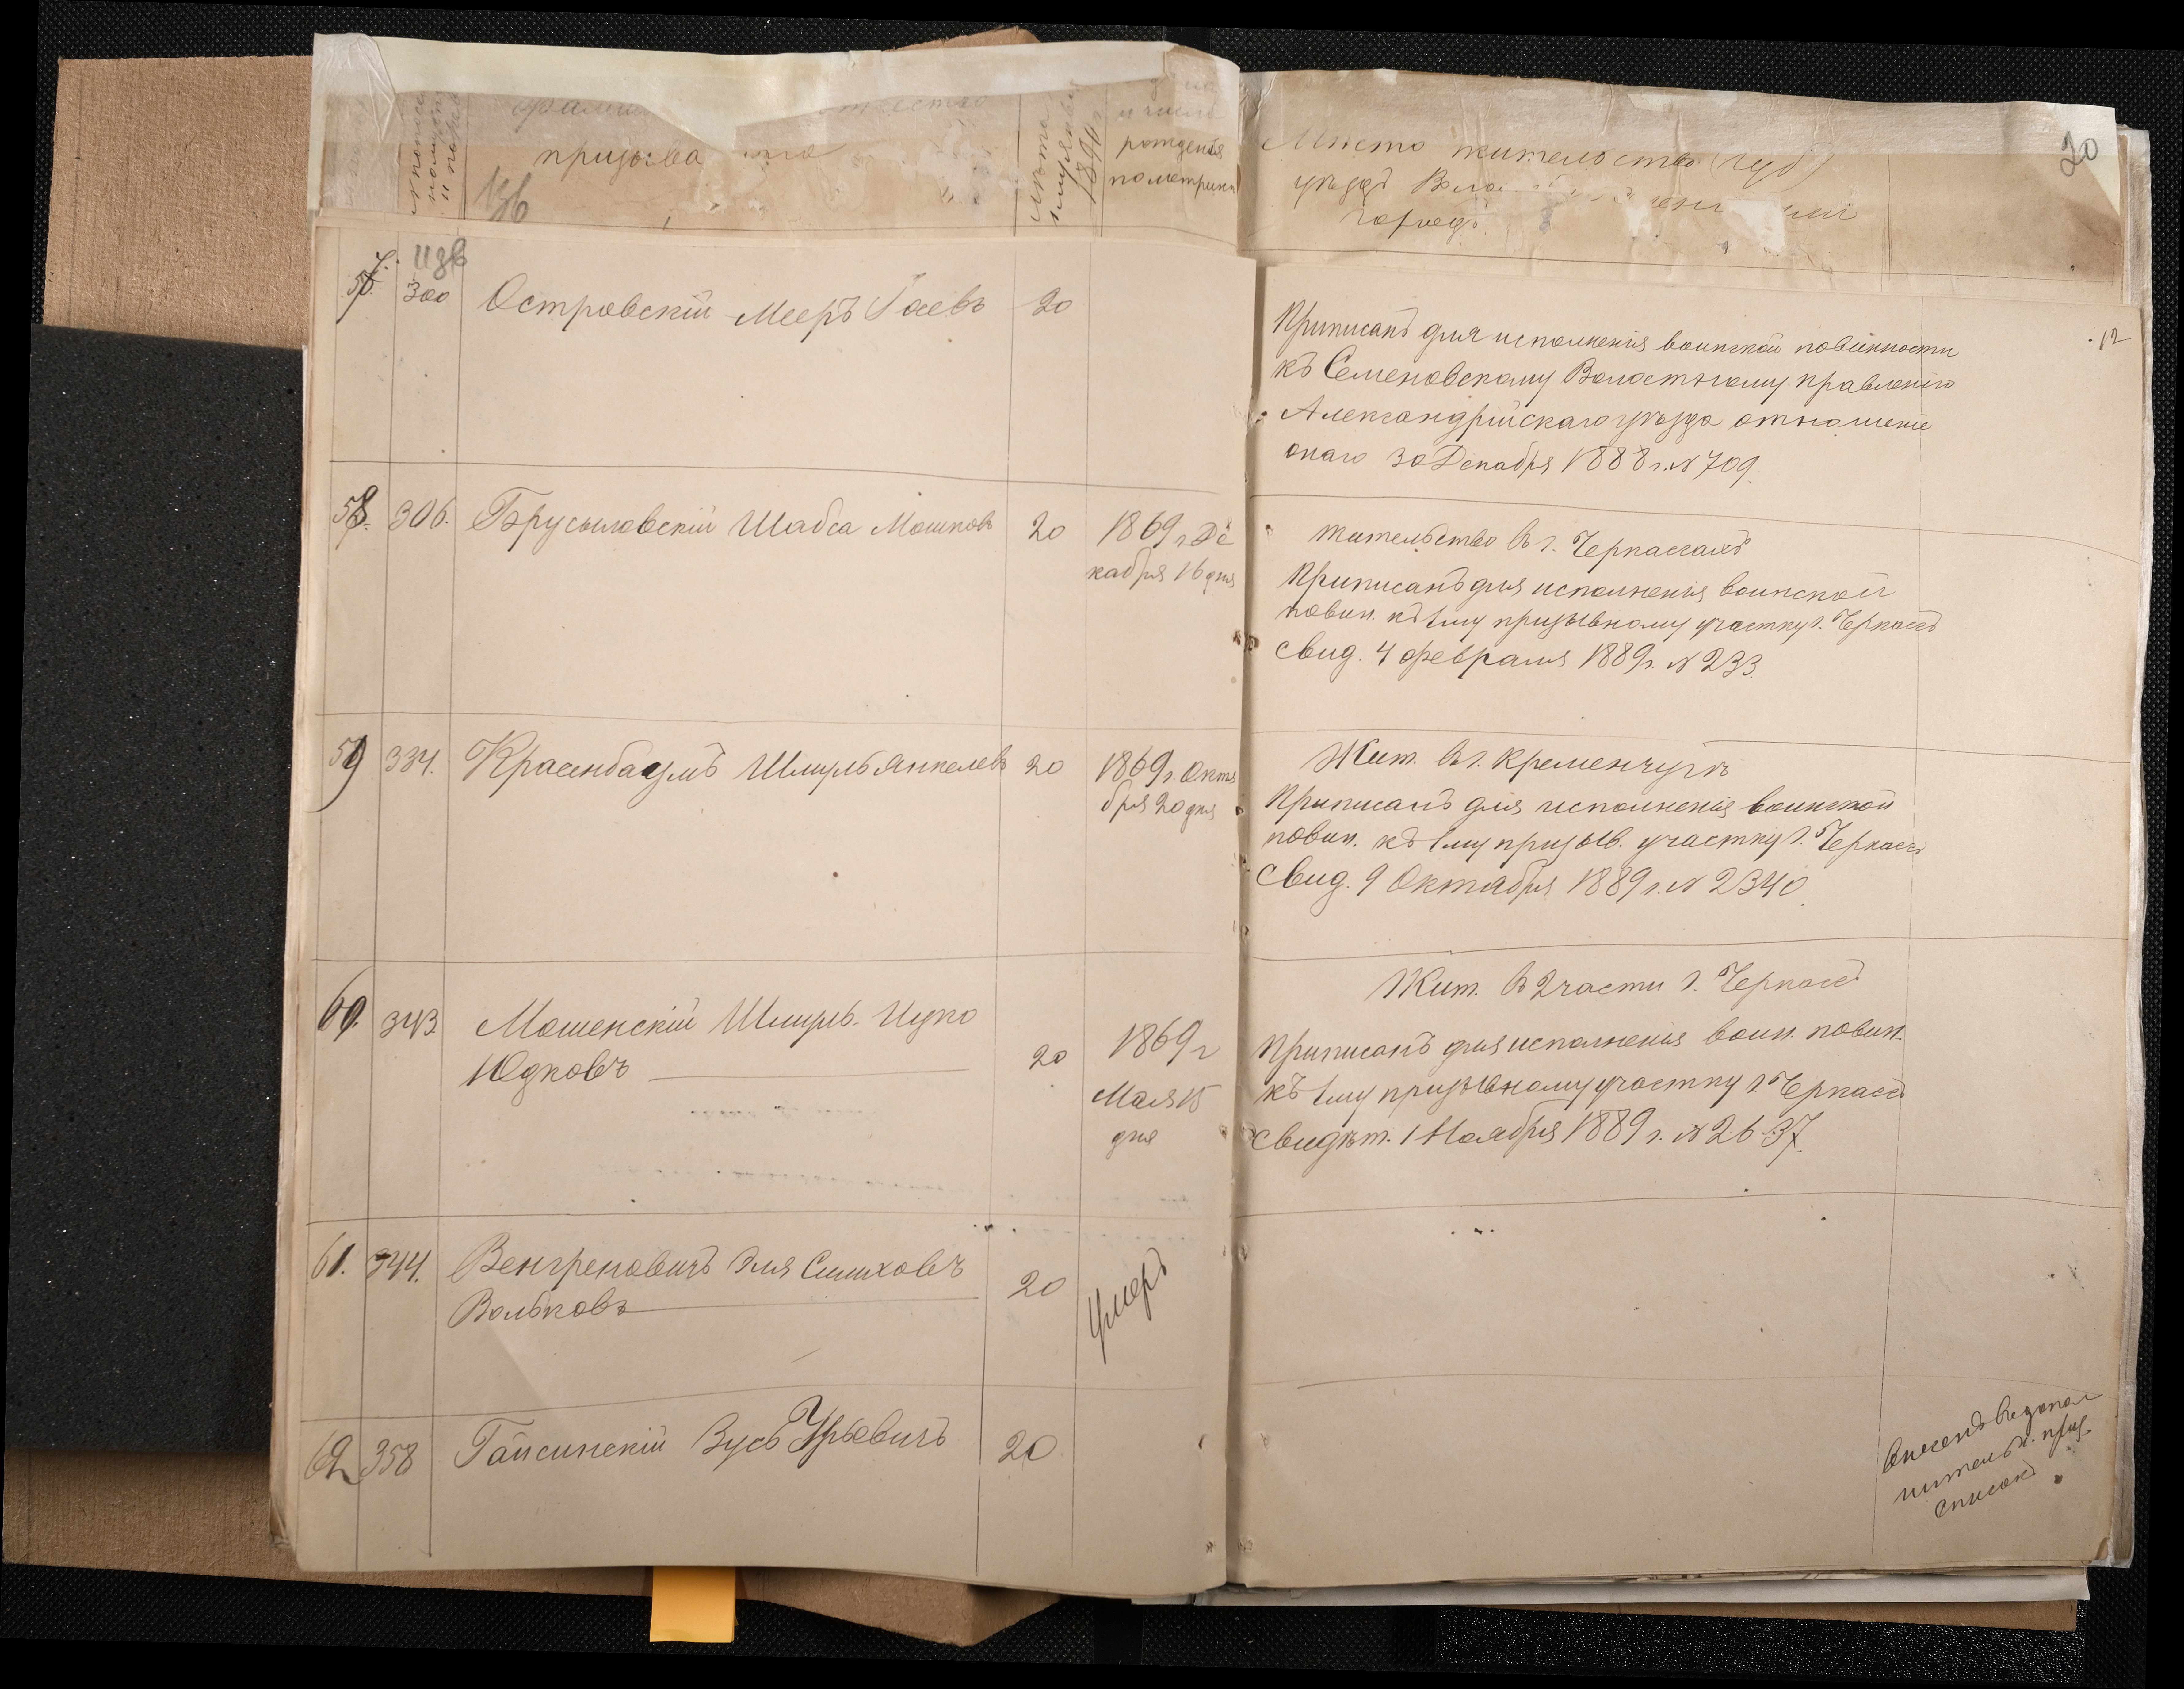 призыва
Лѣта
1890 г.
и число
рожденія
по метрикѣ
Мѣсто жительства (губ)
уѣздъ
городъ
20
изв
57. 300 Островскій Мееръ Гаевъ 20
Приписанъ для исполненія воинской повинности
къ Семеновскому Волостному правленію
Александрійскаго уѣзда отношеніе
онаго 30 Декабря 1888 г. № 709.
58. 306. Брусиловскій Шабса Мошковъ 20 1869 г. Де
кабря 16 дня
жительство в г. Черкассахъ
Приписанъ для исполненія воинской
повин. къ 1му призывному участку г. Черкассъ
свид. 4 февраля 1889 г. № 233.
59 334. Красенбаумъ Шмуль Янкелевъ 20 1869 г. Октя
бря 20 дня
Жит. в г. Кременчугѣ
Приписанъ для исполненія воинской
повин. къ 1му призыв. участку г. Черкассъ
Свид. 9 Октября 1889 г. № 2340.
60. 343 Мошенскій Шмуль-Ицко
Юдковъ 20 1869 г
Мая 15
дня
Жит. в 2 части г. Черкассъ
Приписанъ для исполненія воин. повин.
къ 1му призывному участку г. Черкассъ
свидѣт. 1 Ноября 1889 г. № 2637.
61. 344. Венгреновичъ Эля Симховъ
Вольковъ 20 Умеръ
62 358 Гайсинскій Зусь Урьевичъ 20
Внесенъ въ допол
нительн. приз.
списокъ